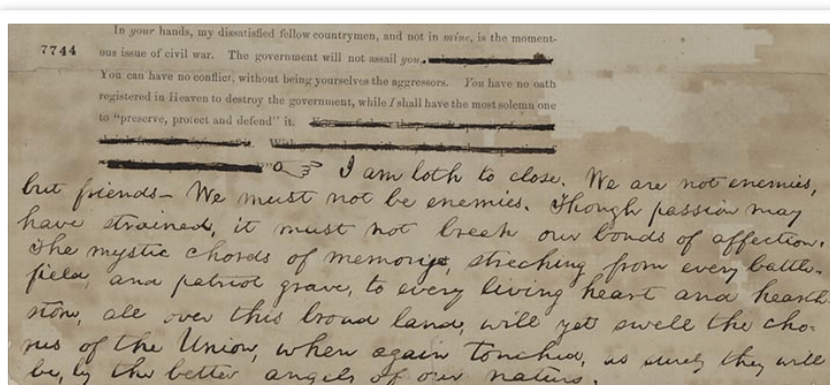 In your hands, my dissatisfied fellow countrymen, and not in mine, is the moment-
7744
ous issue of civil war. The government will not assail you,
You can have no conflict, without being yourselves the aggressors. You have no oath
registered in Heaven to destroy the government, while I shall have the most solemn one
to "preserve, protect and defend" it.
I am loth to close. We are not enemies,
but friends— We must not be enemies. Though passion may
have strained, it must not break our bonds of affection.
The mystic chords of memory, streching from every battle-
field, and patriot grave, to every living heart and hearth-
stone, all over this broad land, will yet swell the cho-
rus of the Union, when again touched, as surely they will
be, by the better angels of our nature.